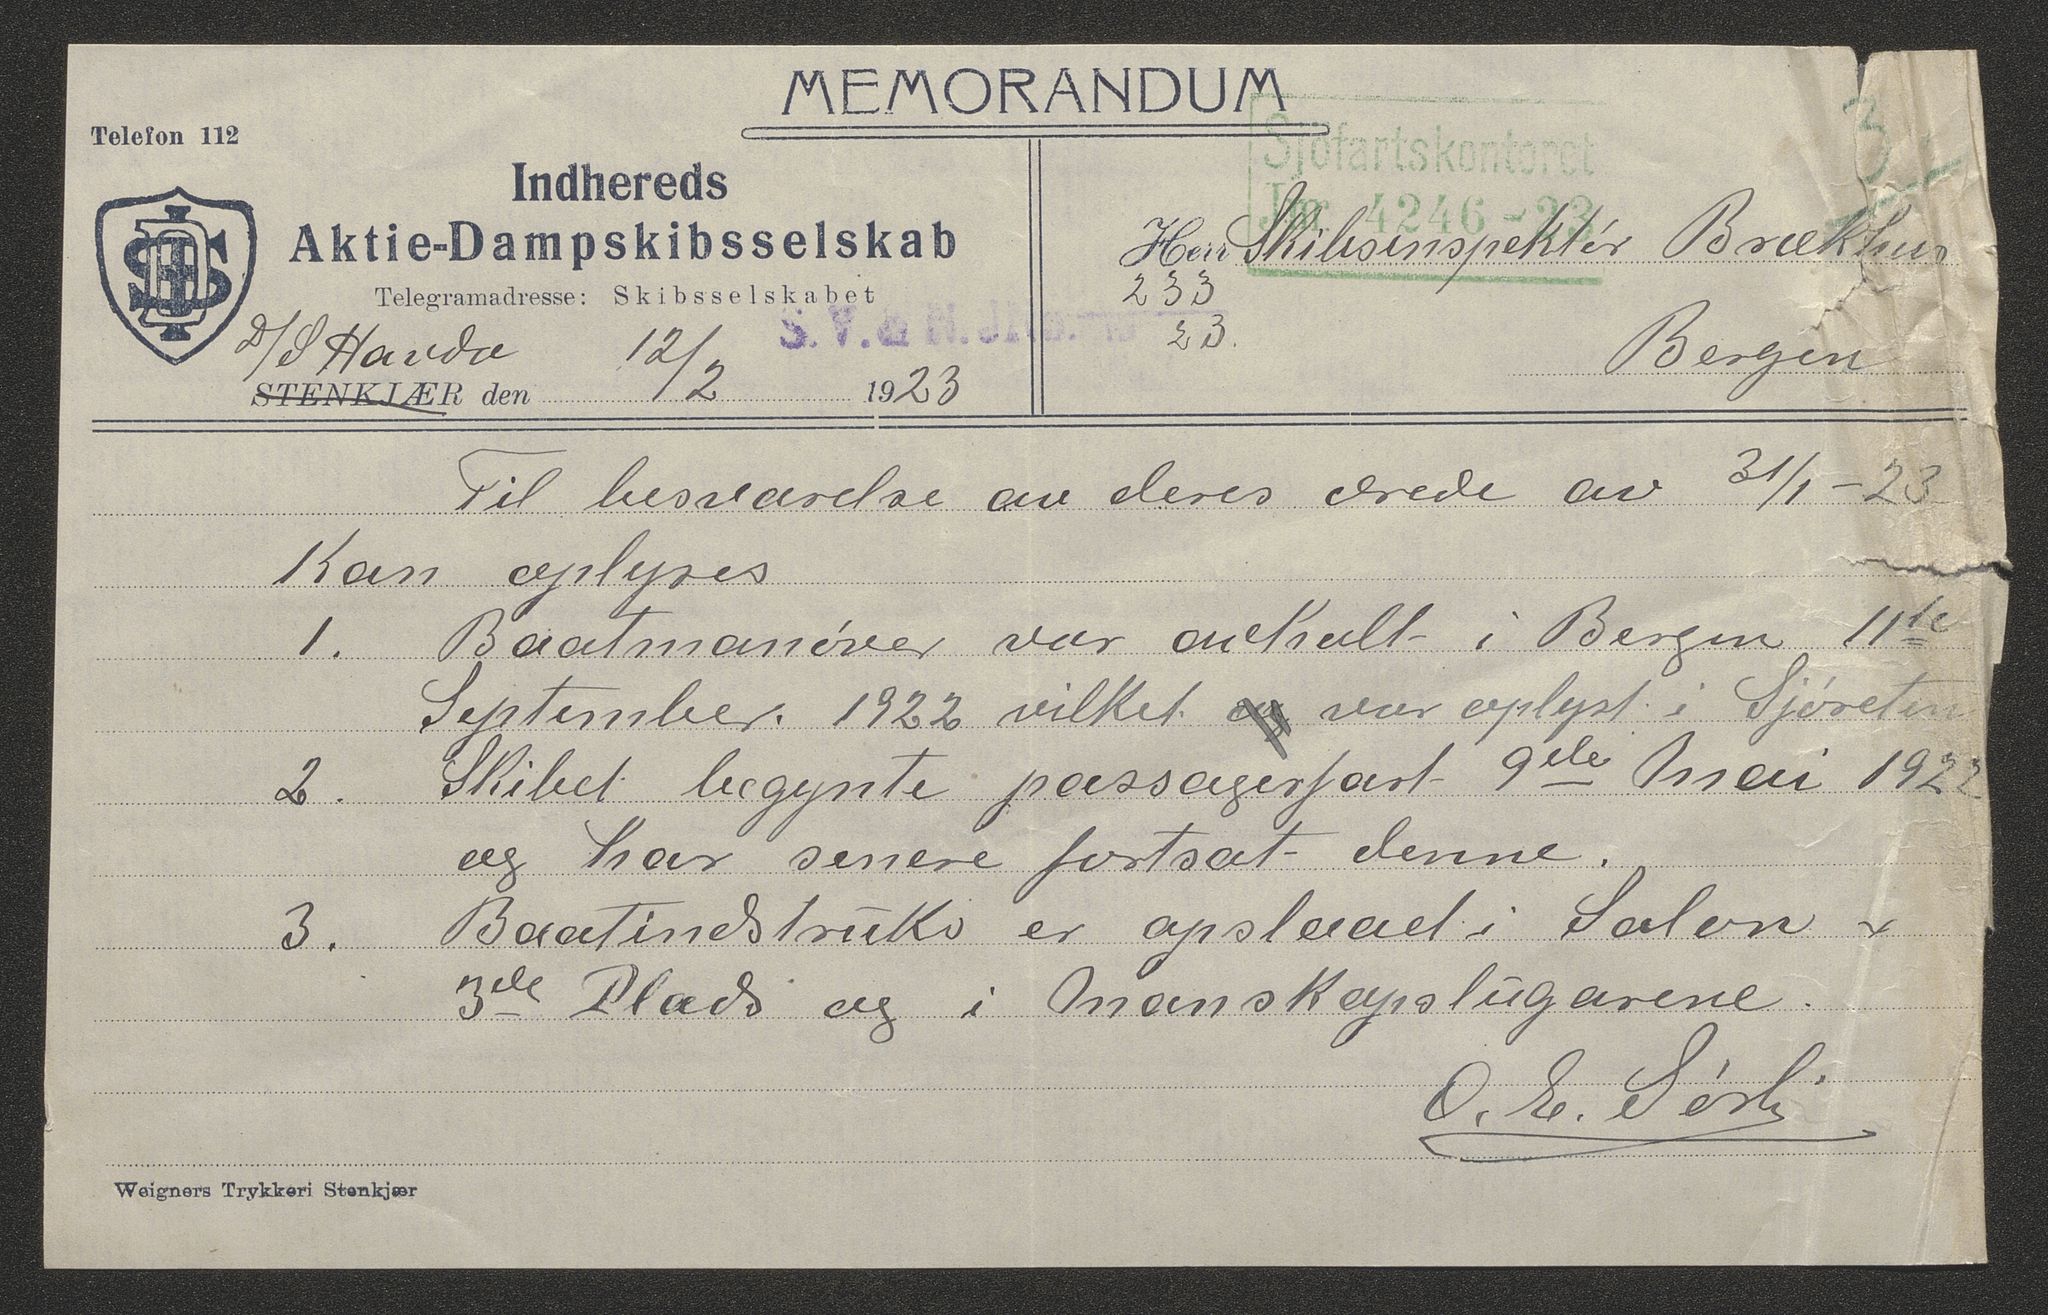 MEMORANDUM
Telefon 112
Indhereds
Aktie-Dampskibsselskab
Telegramadresse: Skibsselskabet
D/S Havda 12/2
STENKJÆR den 1923
Sjöfartskontoret
Jnr. 4246-23
3
S. V. & H.
233
23.
Herr Skibsinspektór Brækhus
Bergen
Til besvarelse av deres ærede av 31/1-23
Kan oplyses
1. Baatmanóver var avholt i Bergen 11te
September. 1922 vilket og var oplyst i Sjóreten
2. Skibet begynte passagerfart 9de Mai 1922
og har senere fortsat denne.
3. Baatindstruks er opslaad i Salon &
3de Plads og i Manskapslugarene.
O. E. Sórli
Weigners Trykkeri Stenkjær